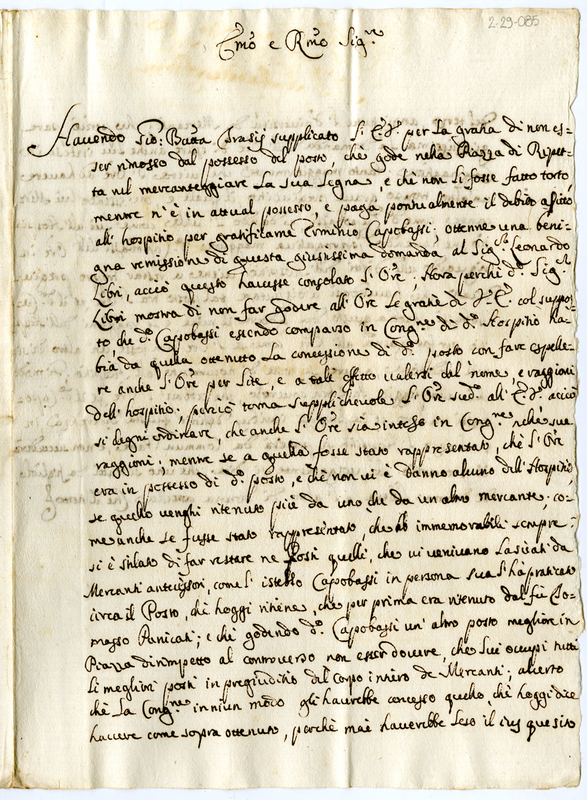 2-29-085
Emo e Rmo Sigre
Havendo Gio: Batta Grasij supplicato V. Em. per la gratia di non es-
ser rimosso dal possesso del posto, che gode nella Piazza di Ripet-
ta nel mercanteggiare la sua legna, e che non li fosse fatto torto,
mentre n'è in attual possesso, e paga pontualmente il debito affitto
all' hospitio per gratificarne Erminio Capobassi; ottenne una beni-
gna remissione di questa giustissima domanda al Sigre Leonardo
Libri, acciò questo havesse consolato l'Ore; Hora perche do Sigre
Libri mostra di non far godere all' Ore le gratie di V. E. col suppos-
to che do Capobassi essendo comparso in Congne di do Hospitio hab-
bia da quella ottenuto la concessione di do posto con fare espelle-
re anche l'Ore per lite, e a tale effetto valersi del nome, e raggioni
dell' hospitio; perciò torna supplichevole l'Ore sudo all' E. V. acciò
si degni ordinare, che anche l'Ore sia inteso in Congne nelle sue
raggioni; mentre se a quella fosse stato rappresentato, che l'Ore
era in possesso di do posto, e che non vi è danno alcuno dell' Hospitio
se quello venghi ritenuto più da uno che da un altro mercante, co-
me anche se fusse stato rappresentato, che ab immemorabili sempre
si è stilato di far restare ne Posti quelli, che vi venivano lasciati da
Mercanti antecessori, come l'istesso Capobassi in persona sua l'hà praticato
circa il Posto, che hoggi ritiene, che per prima era ritenuto dal fù To-
masso Panicati; e che godendo do Capobassi un' altro posto megliore in
Piazza dirimpetto al controverso non esser dovere, che lui occupi tutti
li megliori posti in pregiuditio del corpo intiero de Mercanti; al certo
che la Congne in niun modo gli haverebbe concesso quello, che hoggi dice
havere come sopra ottenuto, perche mai haverebbe leso il ius quesito